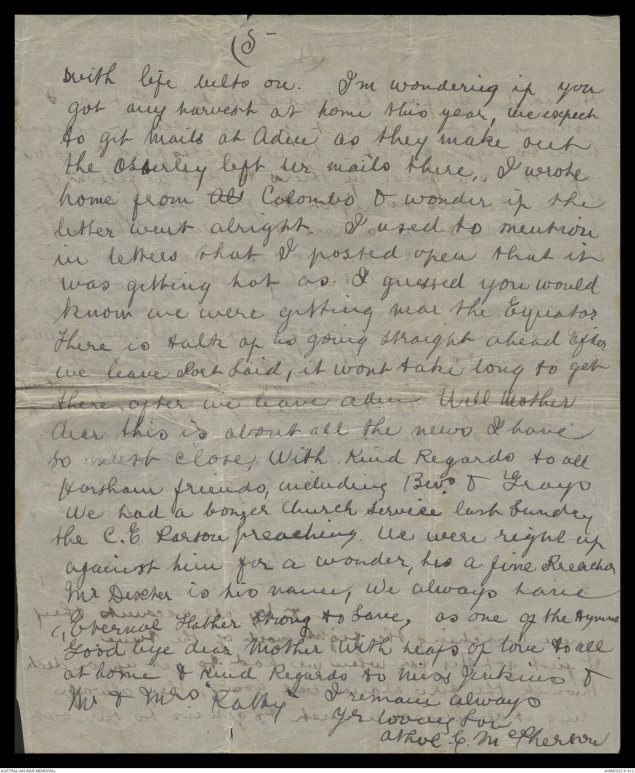 (5-
with life belts on. I'm wondering if you
got any harvest at home this year, we expect
to get mails at Aden as they make out
the Osterley left her mails there, I wrote
home from Colombo & wonder if the
letter went alright. I used to mention
in letters that I posted open that it
was getting hot as I guessed you would
know we were getting near the Equator
There is talk of us going straight ahead after
we leave Port Said, it wont take long to get
there after we leave Aden Well Mother
dear this is about all the news I have
so must close, With Kind Regards to all
Horsham friends, including Bevs & Grays
We had a bonzer Church Service last Sunday
the C.E Parson preaching. We were right up
against him for a wonder, hes a fine Preacher
Mr Dexter is his name, We always have
"Eternal Father Strong to Save, as one of the Hymns
Good bye dear Mother with heaps of love to all
at home & Kind Regards to Miss Jenkins &
Mr & Mrs "Ratty" I remain always
Yr loving Son
Athol E. McPherson
AUSTRALIAN WAR MEMORIAL